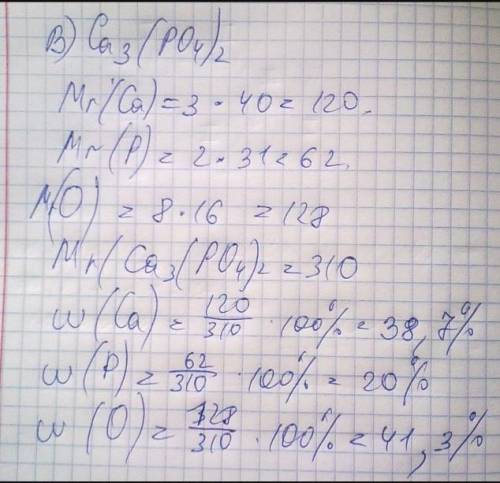 В) Ca₃(PO₄)₂
Mr(Ca) = 3 · 40 = 120.
Mr(P) = 2 · 31 = 62.
Mr(O) = 8 · 16 = 128
Mr(Ca₃(PO₄)₂ = 310
ω(Ca) = 120/310 · 100% = 38,7%
ω(P) = 62/310 · 100% = 20%
ω(O) = 128/310 · 100% = 41,3%